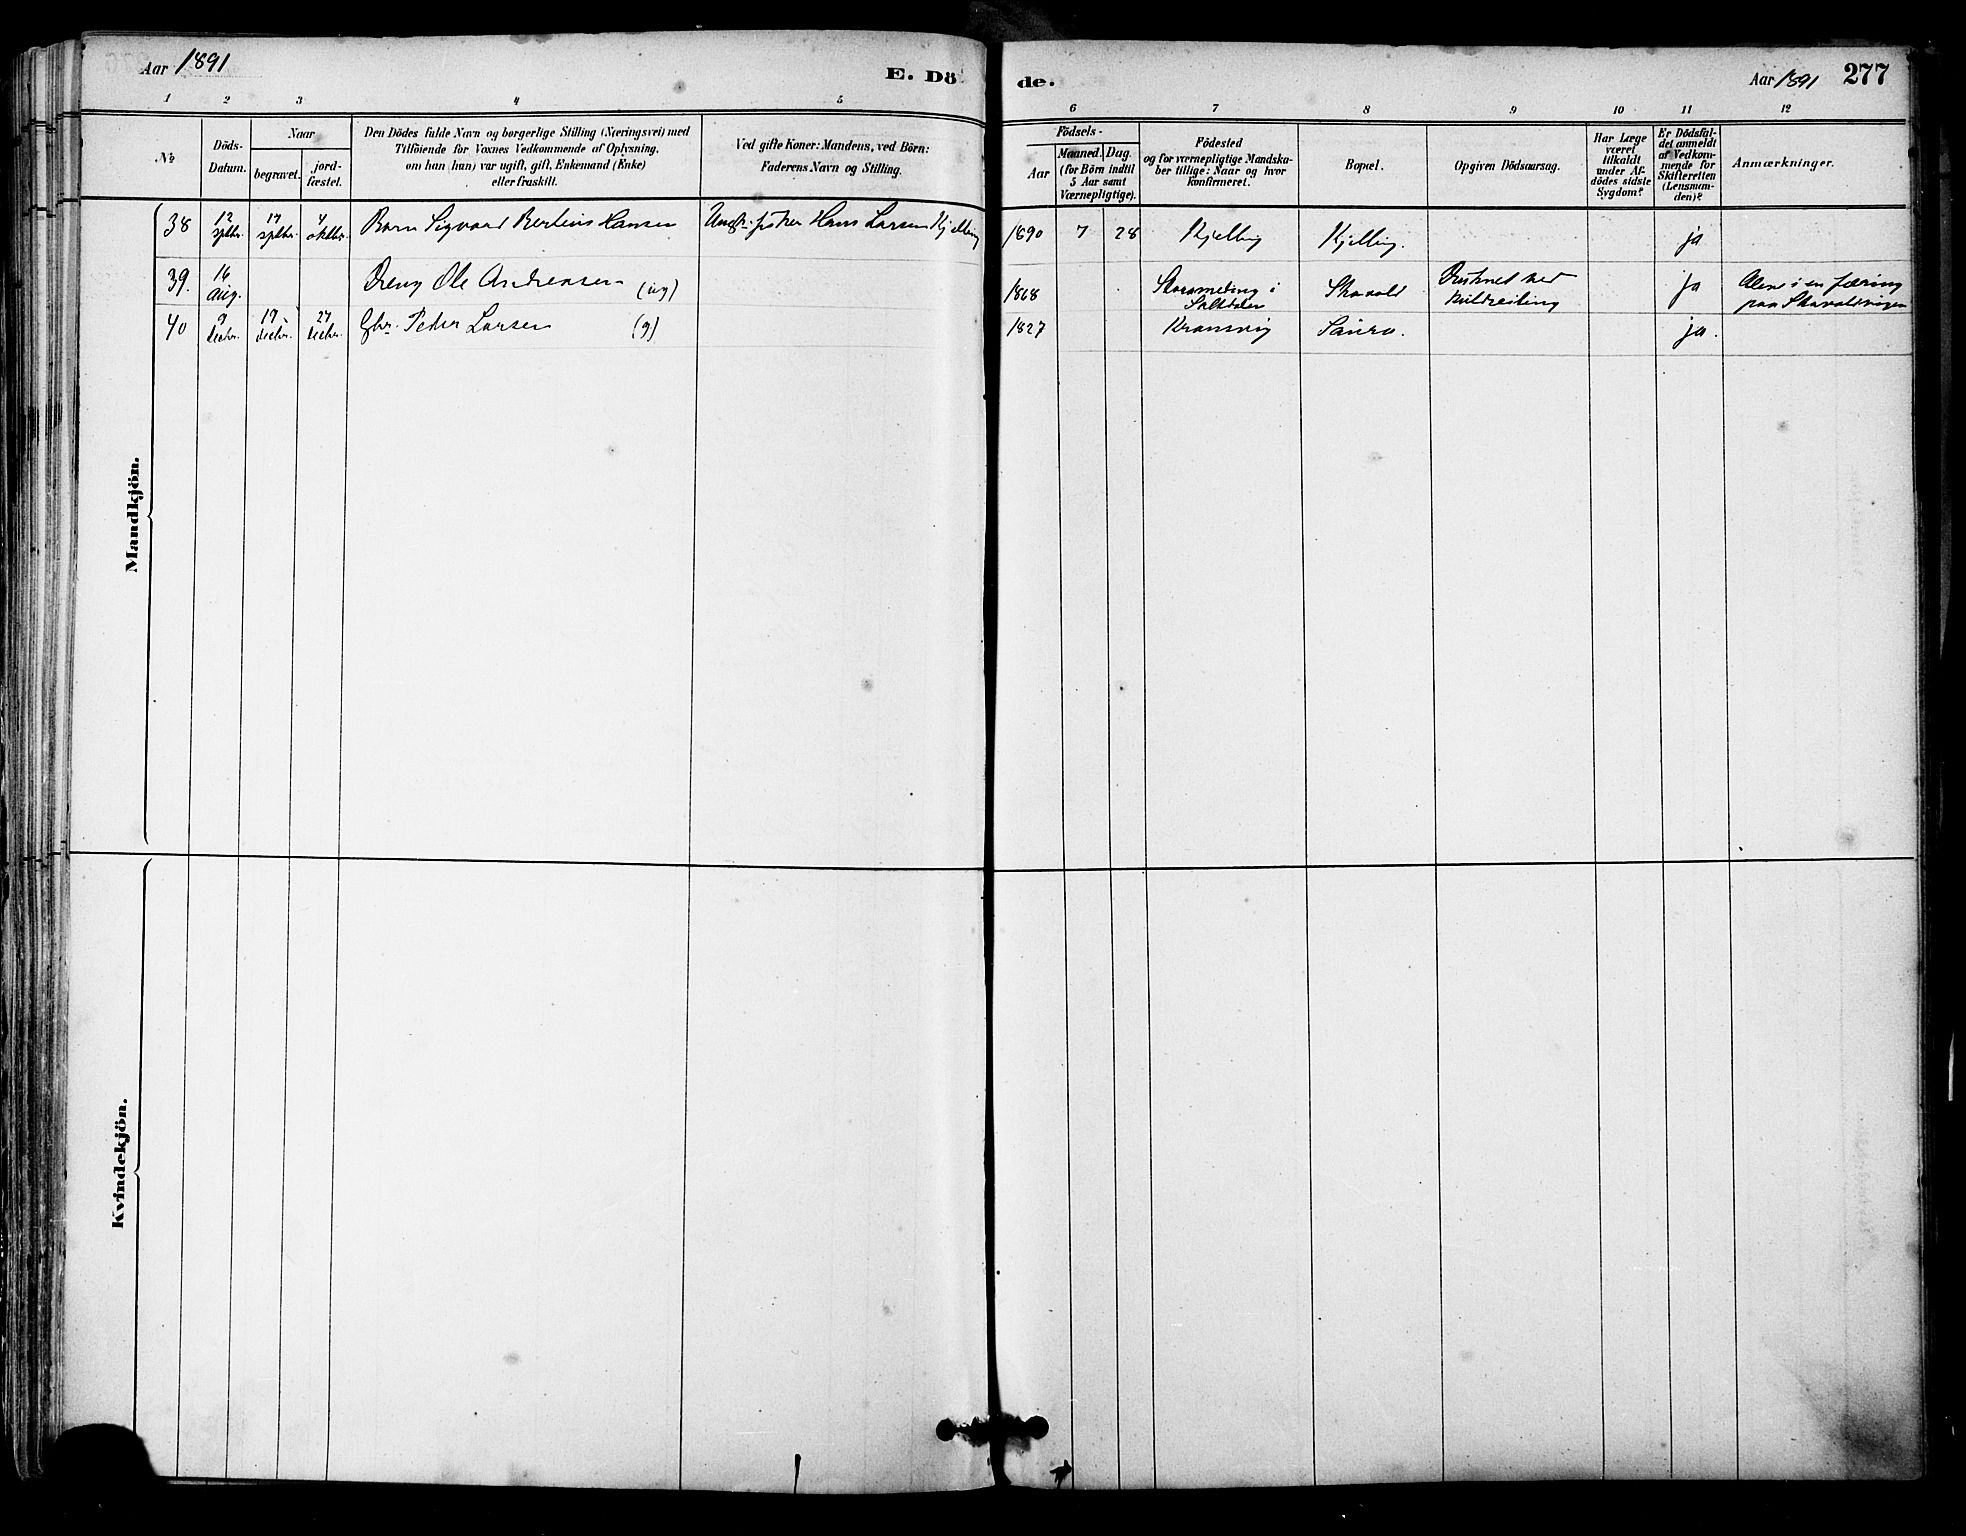 Aar 1891
E. Dö
de.
Aar 1891
277
1 2 3 4 5
6 7 8 9 10 11 12
№
Döds-
Datum.
Naar
begravet.
jord-
fæstet.
Den Dödes fulde Navn og borgerlige Stilling (Næringsvei) med
Tilföiende for Voxnes Vedkommende af Oplysning,
om han (hun) var ugift, gift, Enkemand (Enke)
eller fraskilt.
Ved gifte Koner: Mandens, ved Börn:
Faderens Navn og Stilling.
Födsels-
Aar
Maaned.
Dag.
(for Börn indtil
5 Aar samt
Værnepligtige).
Födested
og for værnepligtige Mandska-
ber tillige: Naar og hvor
konfirmeret.
Bopæl.
Opgiven Dödsaarsag.
Har Læge
været
tilkaldt
under Af-
dödes sidste
Sygdom?
Er Dödsfal-
det anmeldt
af Vedkom-
mende for
Skifteretten
(Lensman-
den)?
Anmærkninger.
Mandkjön.
38
12
sptbr.
17
sptbr.
4
oktbr.
Barn Sigvard Bertius Hansen
fisker Hans Larsen Kjelling
1890
7
28
Kjelling
Kjelling.
ja
39.
16
Aug.
Dreng Ole Andreasen (ug)
1868
i
Saltdalen
Skavold
Druknet ved
ja
Alene i en færing
paa
40
9
decbr.
19
decbr.
27
decbr.
Gbr. Peder Larsen (g)
1827
ja.
Kvindekjön.